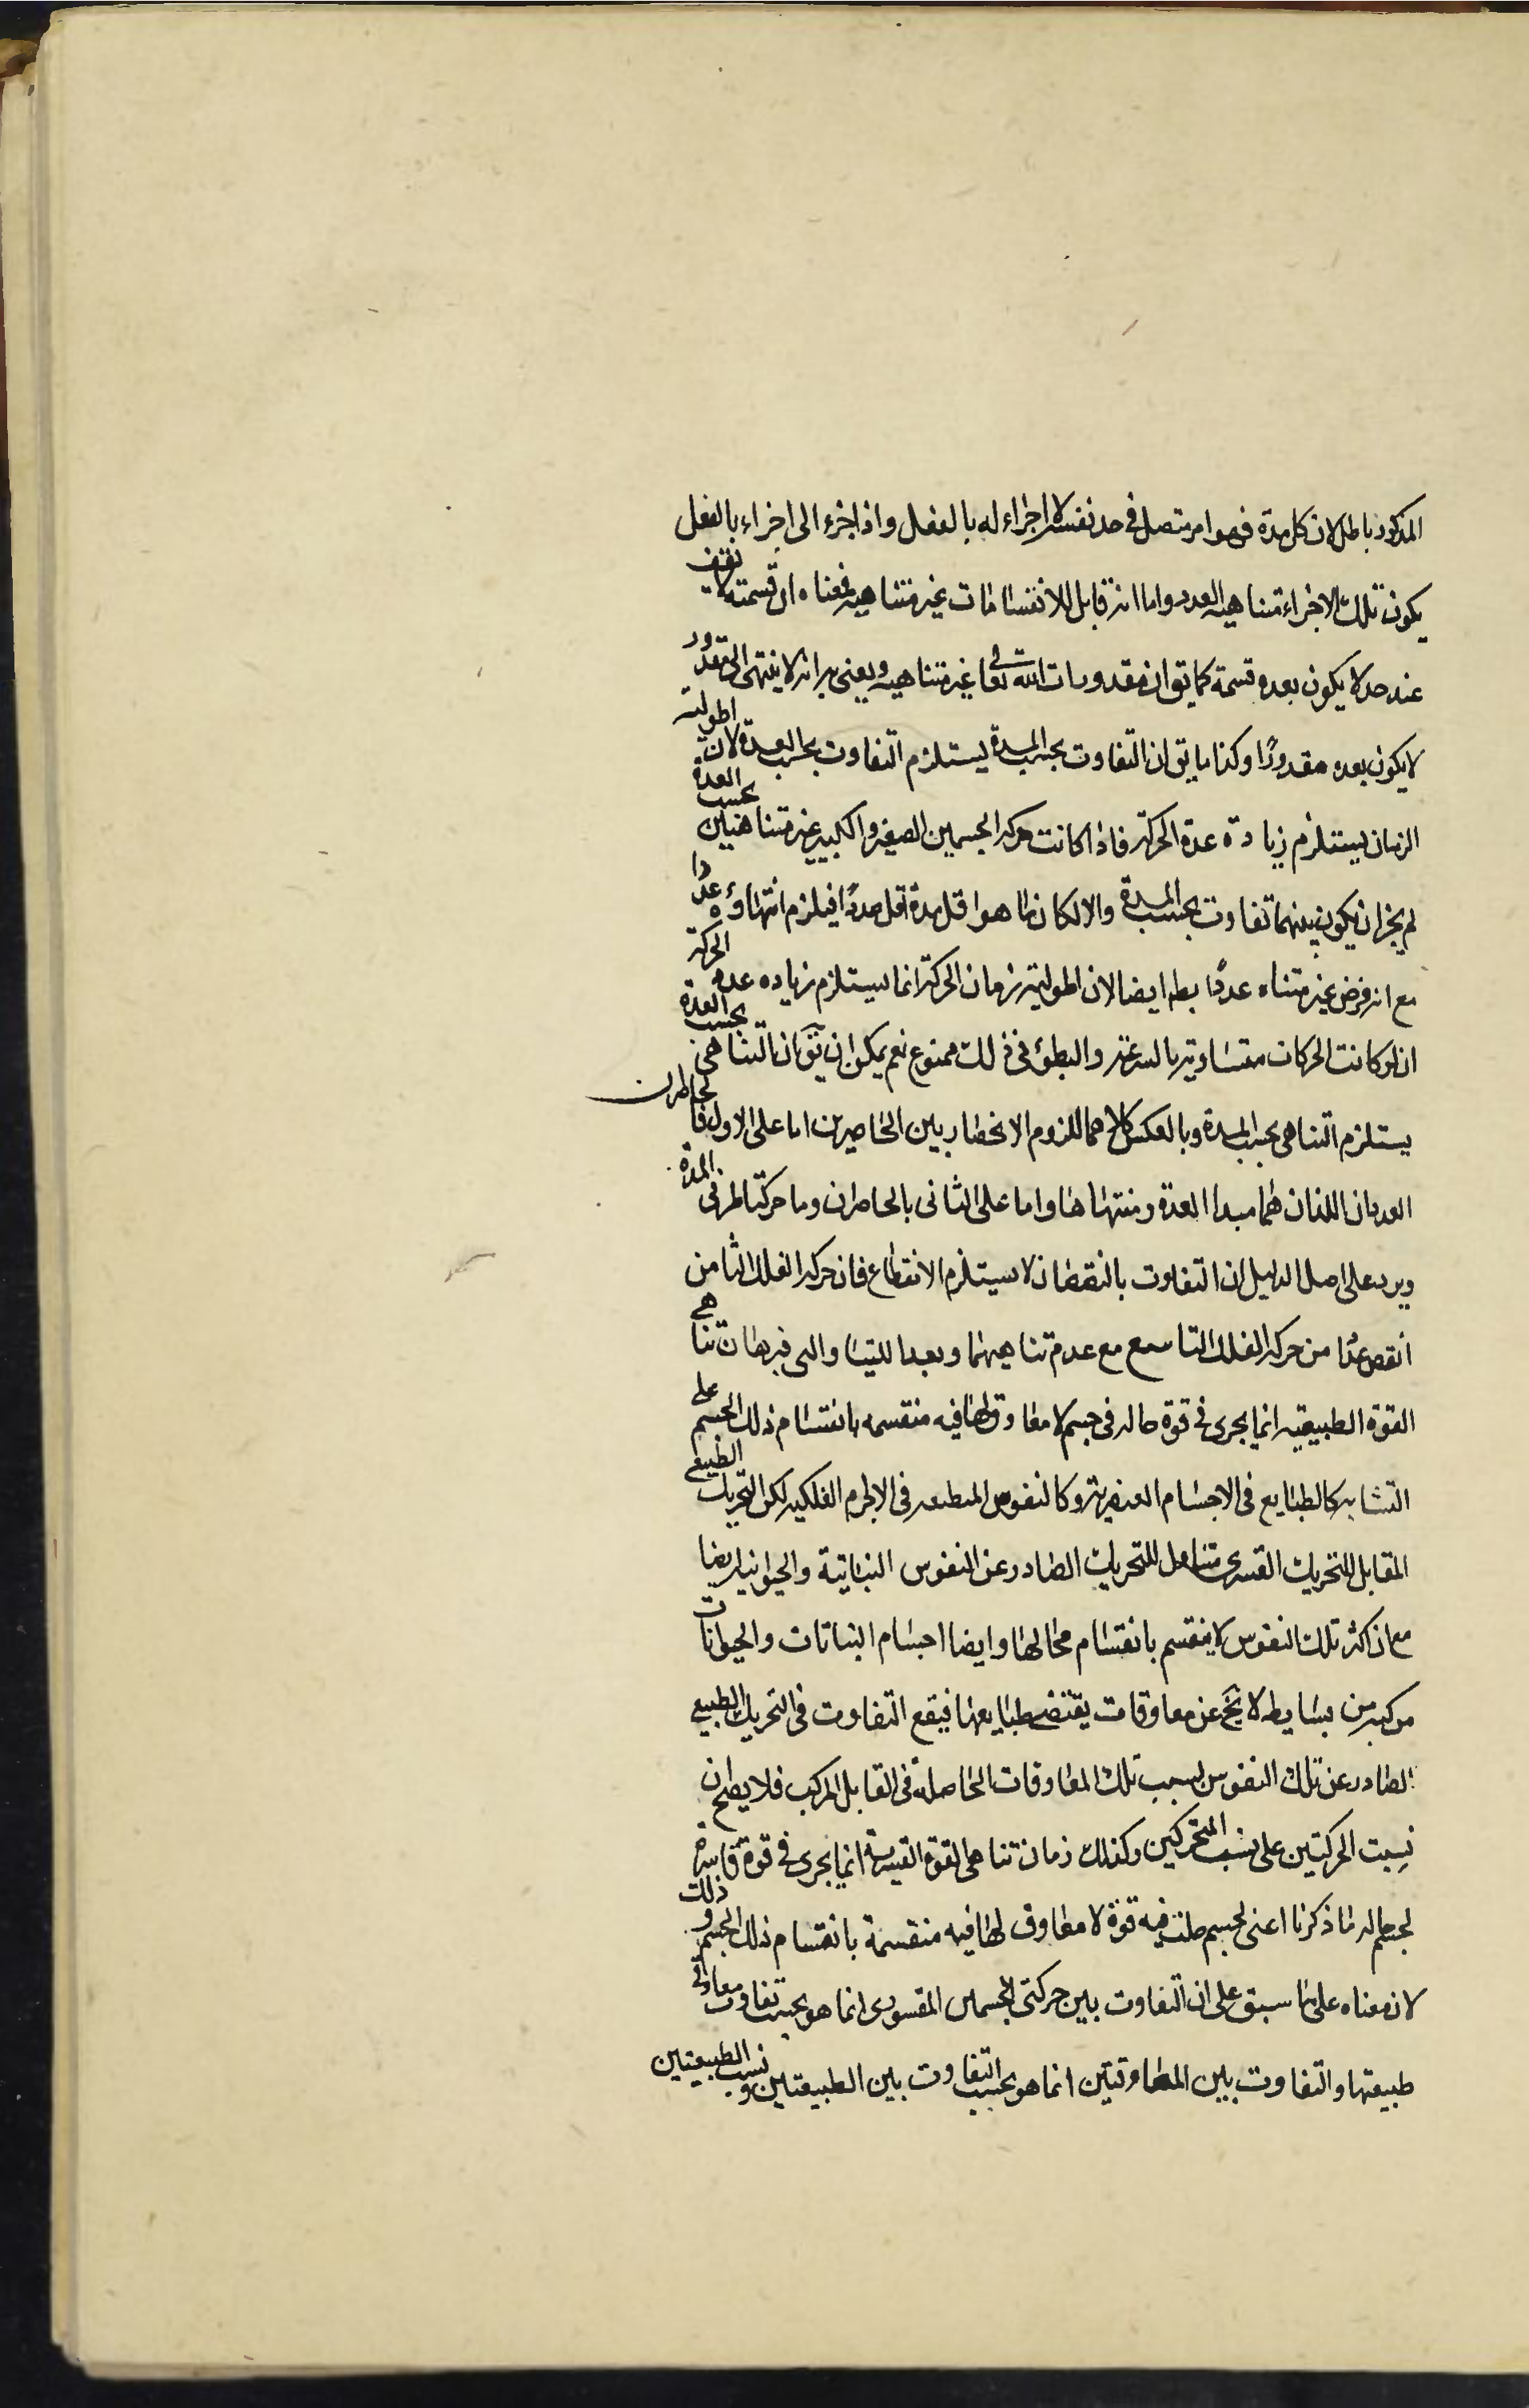 المذكور باطل لان كل مدة فهو امر متصل فى حد نفسه لا اجزاء له بالفعل واذا جزء الى اجزاء بالفعل
يكون تلك الاجزاء متناهيه العدد واما انه قابل للانقسامات غير متناهيه فمعناه ان قسمته لا تقف
عند حد لا يكون بعده قسمة كما يق ان مقدورات الله تعالى غير متناهيه ويعنى به انه لا ينتهى الى مقدور
لا يكون بعده مقدورًا وكذا ما يق ان التفاوت بحسب المدة يستلزم التفاوت بحسب العدة لان اطولية
الزمان يستلزم زيادة عدة الحركة فاذا كانت حركه الجسمين الصغير والكبير غير متناهيين بحسب العدة
لم يجز ان يكون بينهما تفاوت بحسب المدة والا لكان ما هو اقل مدة اقل عددًا فيلزم انتهاؤه عددًا
مع انه فرض غير متناه عددًا بط ايضا لان اطولية زمان الحركة انما يستلزم زياده عدد الحركة
ان لو كانت الحركات متساوية بالسرعة والبطؤ فى ذلك ممنوع نعم يمكن ان يق ان التناهى بحسب العدة
يستلزم التناهى بحسب المدة وبالعكس كلاهما للزوم الانحصار بين الحاصرين اما على الاول فالحاصران
العددان اللذان هما مبدا العدة ومنتهاها واما على الثانى بالحاصران وما حركتا طرفى المدة
ويرد على اصل الدليل ان التفاوت بالنقصان لا يستلزم الانقطاع فان حركه الفلك الثامن
انقص عدًا من حركه الفلك التاسع مع عدم تناهيهما وبعد اللتيا والتى فبرهان تناهى
القوة الطبيعيه انما يجرى فى قوة حاله فى جسم لا معاوق لها فيه منقسمه بانقسام ذلك الجسم على
التشابه كالطبايع فى الاجسام العنصرية وكالنفوس المنطبعه فى الاجرام الفلكيه لكن التحريك الطبيعى
المقابل للتحريك القسرى متناول للتحريك الصادر عن النفوس النباتية والحيوانيه ايضا
مع ان اكثر تلك النفوس لا ينقسم بانقسام محالها وايضا اجسام النباتات والحيوانات
مركبه من بسايط لا يخ عن معاوقات يقتضيه طبايعها فيقع التفاوت فى التحريك الطبيعى
الصادر عن تلك النفوس بسبب تلك المعاوقات الحاصلة فى القابل المركب فلا يصح ان
نسبت الحركتين على نسب المتحركين وكذلك زمان تناهى القوة القسرية انما يجرى فى قوة قاسرة
لجسم حاله ما ذكرنا اعنى لجسم حلت فيه قوة لا معاوق لها فيه منقسمة بانقسام ذلك الجسم وذلك
لان معناه على ما سبق على ان التفاوت بين حركتى الجسمين المقسورى انما هو بحسب تفاوت معاوق
طبيعتها والتفاوت بين المعاوقتين انما هو بحسب التفاوت بين الطبيعتين ونسب الطبيعتين